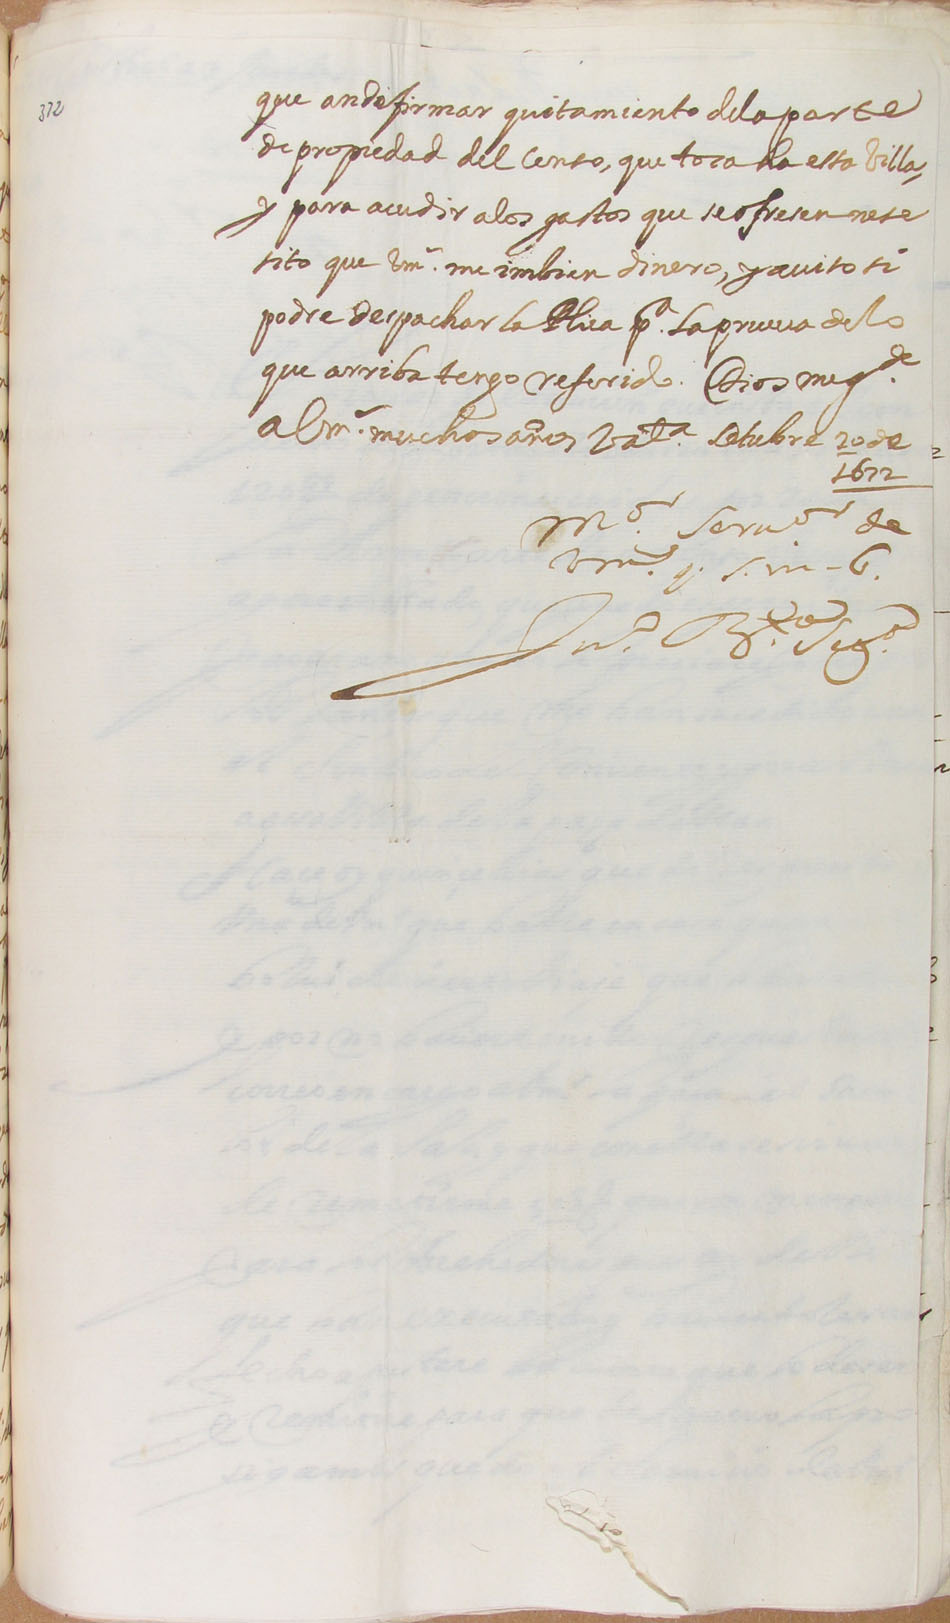 372
que an de firmar quitamiento de la parte
de propiedad del Censo, que toca ha esta Villa,
y para acudir a los gastos que se ofresen nese
sito que Vm.s me imbien dinero, y auiso si
podre despachar la Plica p.a la prueua de lo
que arriba tengo referido. Dios me g.de
a Vm.s muchos años Val.a Octubre 20 de
1672
M.or Seru.or de
Vm.s q. s. m. b.